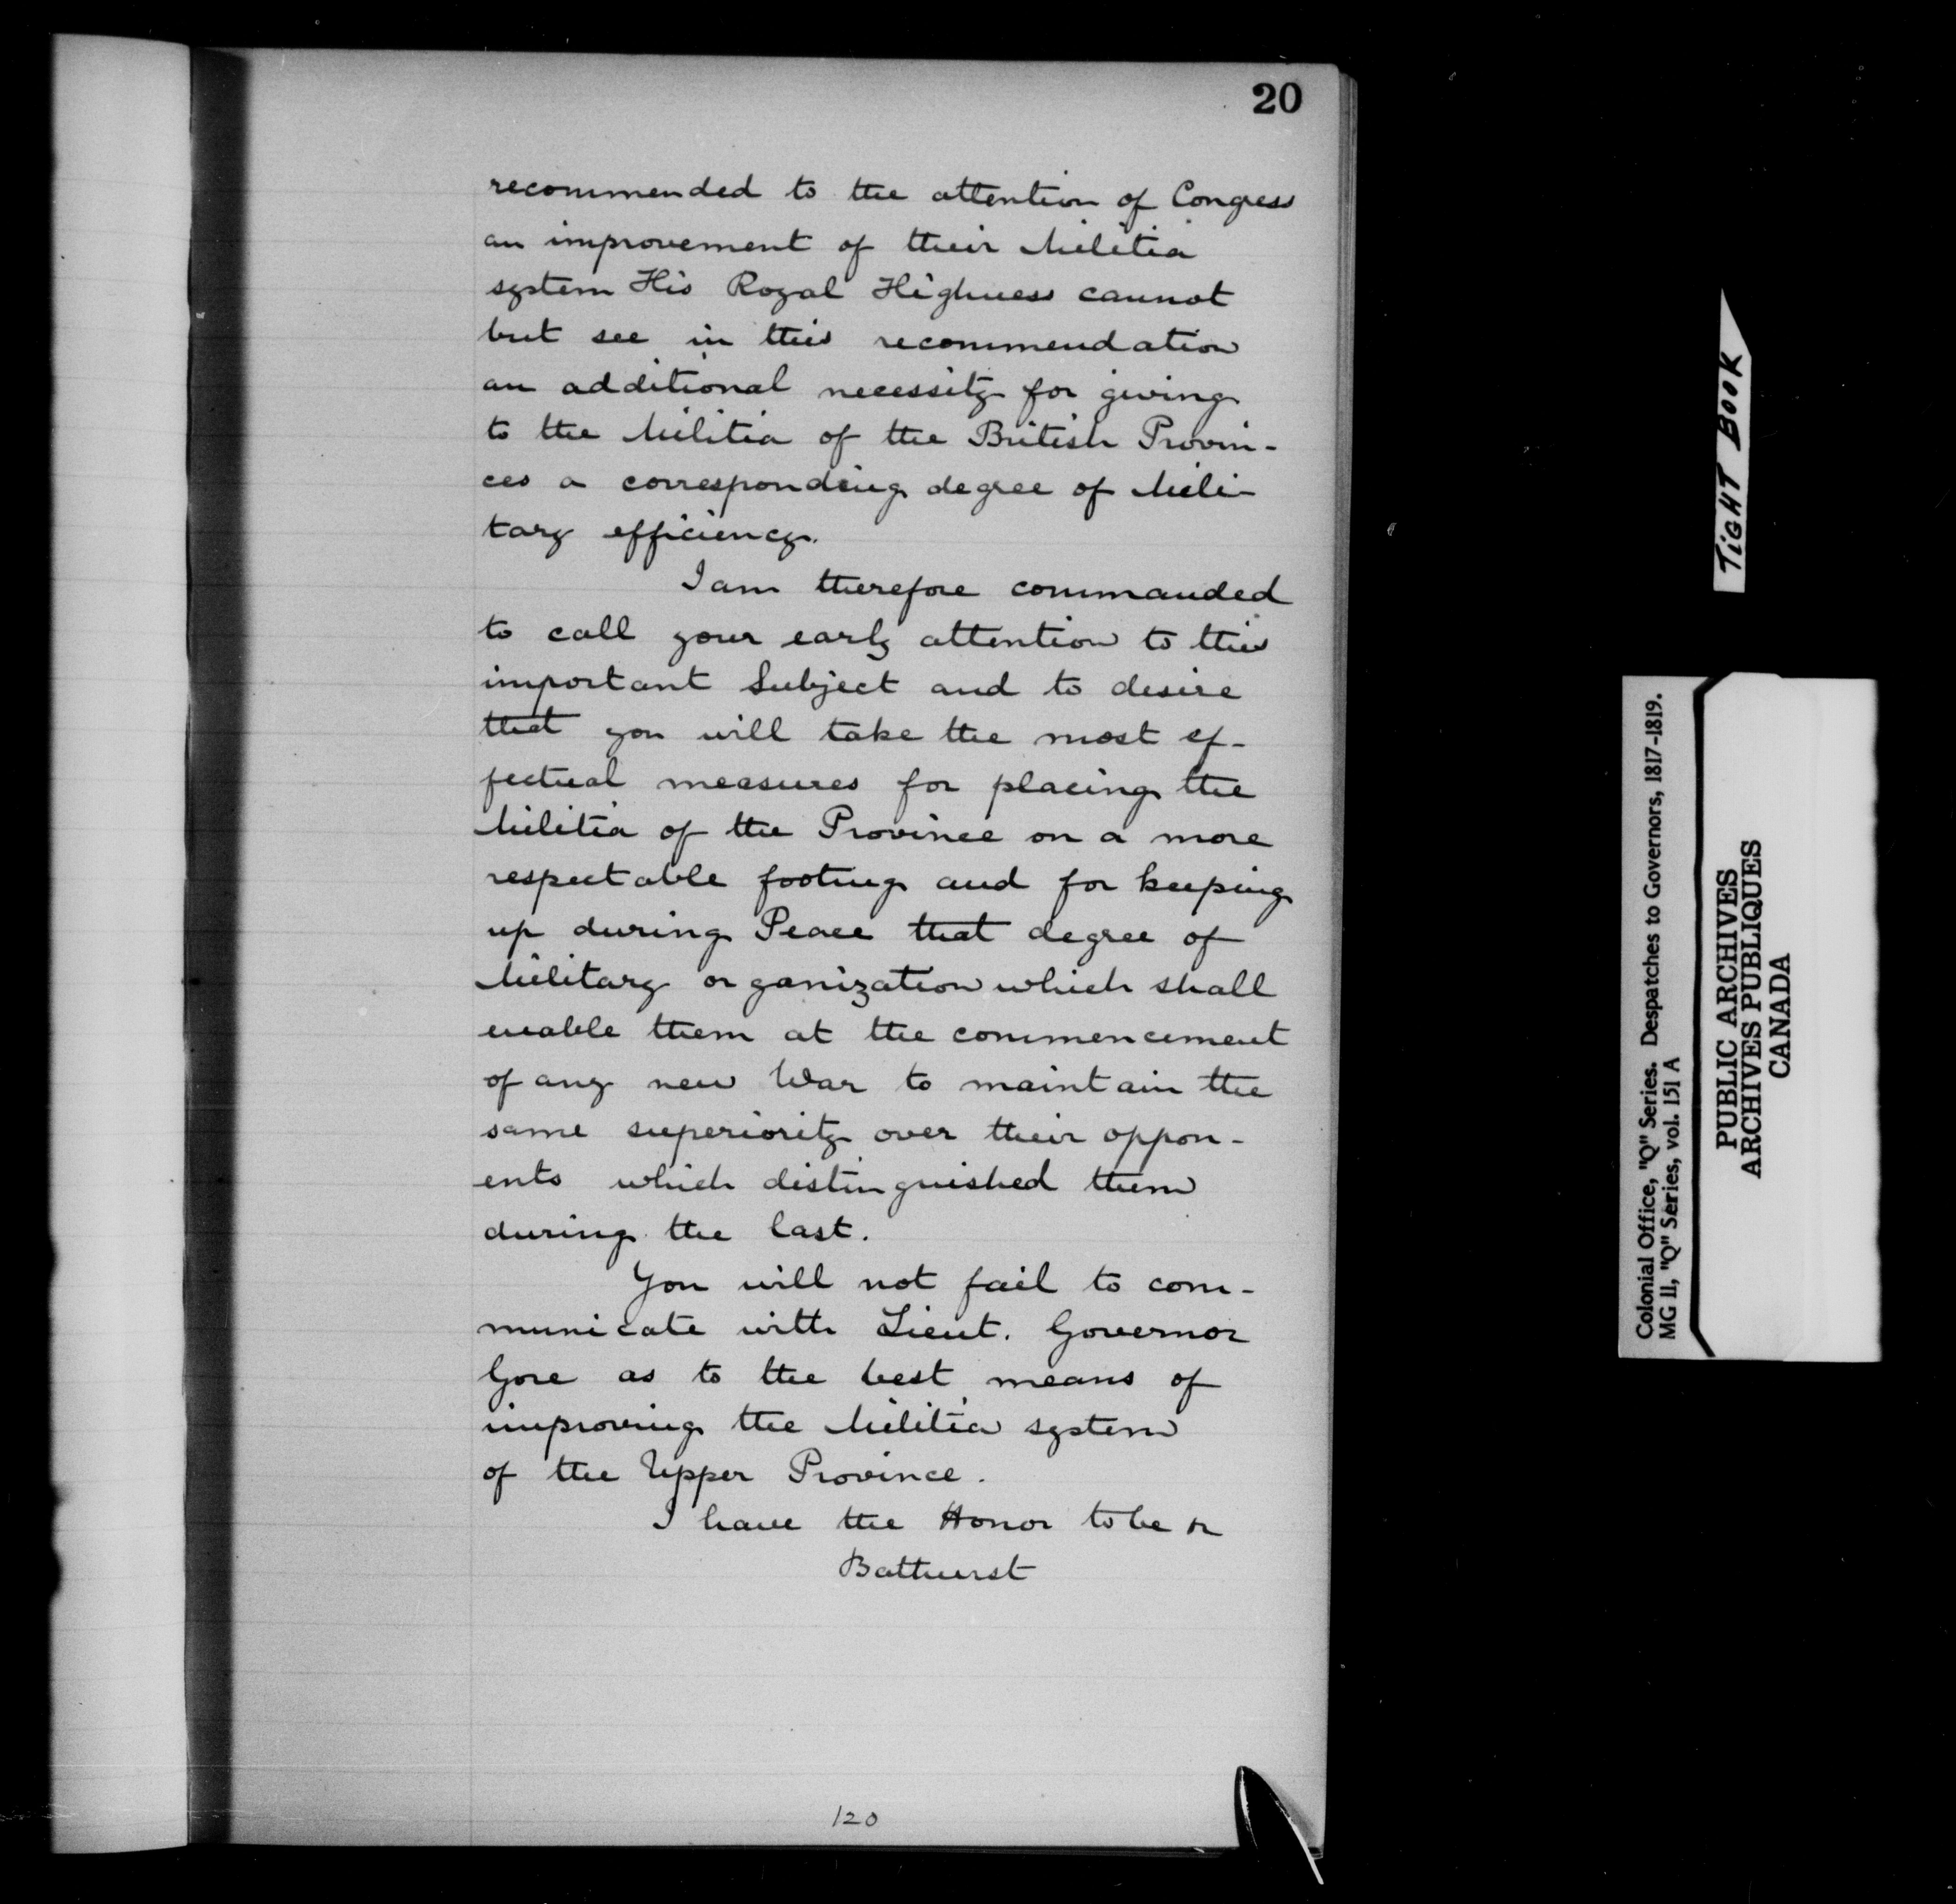 20
recommended to the attention of Congress
an improvement of their Militia
system His Royal Highness cannot
but see in this recommendation
an additional necessity for giving
to the Militia of the British Provin-
ces a corresponding degree of Mili-
tary efficiency.
I am therefore commanded
to call your early attention to this
important Subject and to desire
that you will take the most ef-
fectual measures for placing the
Militia of the Province on a more
respectable footing and for keeping
up during Peace that degree of
Military organization which shall
enable them at the commencement
of any new War to maintain the
same superiority over their oppon-
ents which distinguished them
during the last.
You will not fail to com-
municate with Lieut. Governor
Gore as to the best means of
improving the Militia system
of the Upper Province.
I have the Honor to be
Bathurst
120
TIGHT BOOK
Colonial Office, "Q" Series. Despatches to Governors, 1817-1819.
MG 11, "Q" Series, vol. 151 A
PUBLIC ARCHIVES
ARCHIVES PUBLIQUES
CANADA